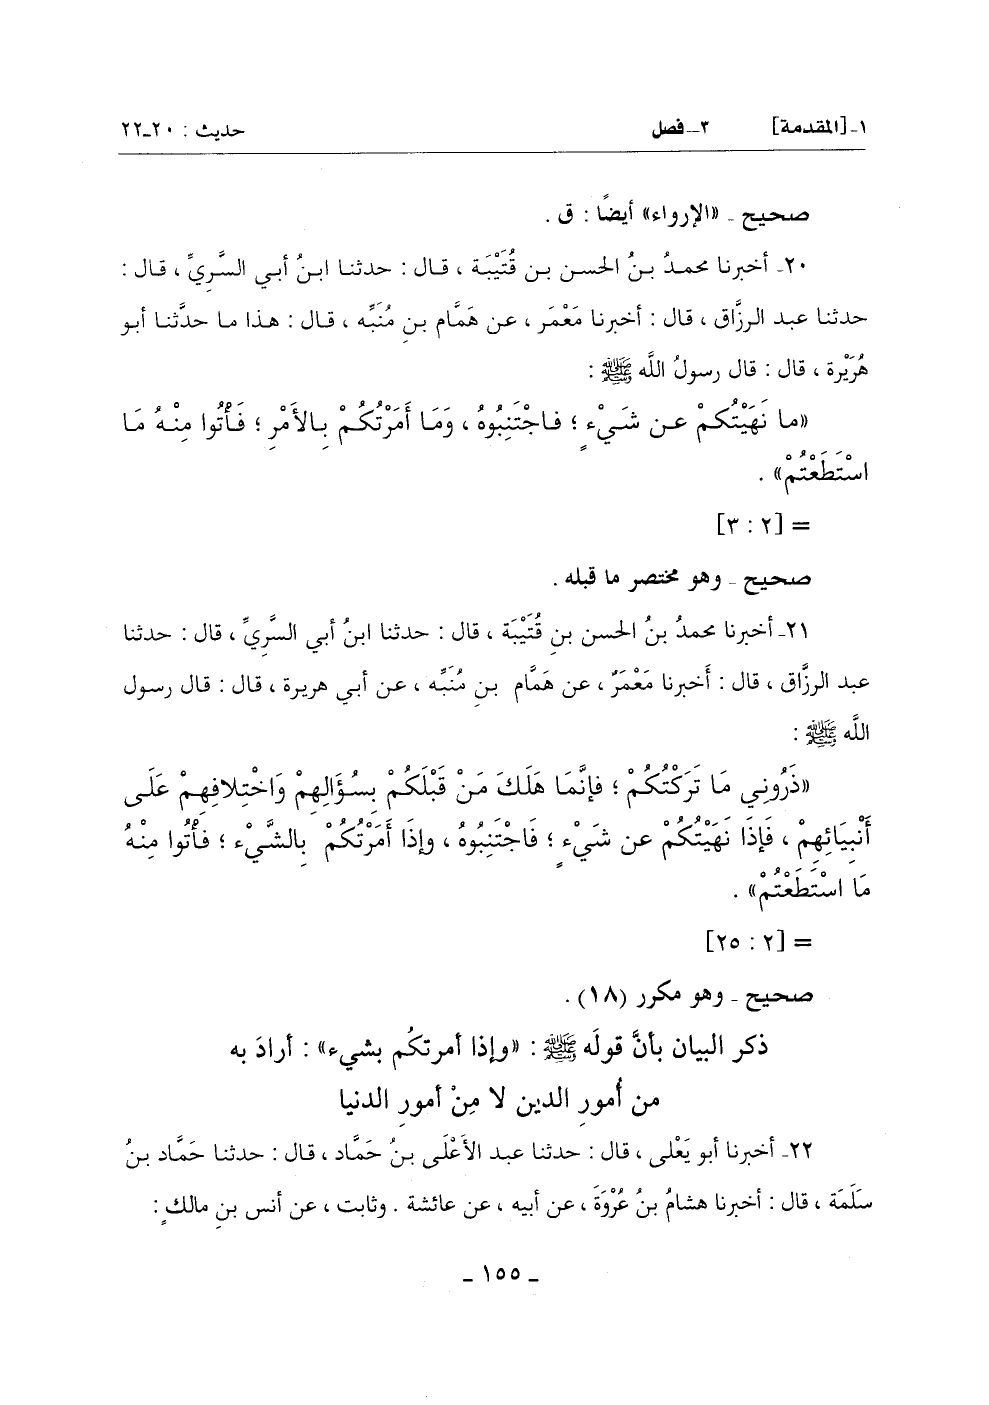 ١ـ [المقدمة] ٣ــ فصل حديث : ٢٠ـ٢٢
صحيح ـ «الإرواء» أيضًا : ق .
٢٠ـ أخبرنا محمدُ بنُ الحسن بن قُتَيْبَة ، قال : حدثنا ابنُ أبي السَّريِّ ، قال :
حدثنا عبد الرزَّاق ، قال : أخبرنا مَعْمَر ، عن هَمَّام بنِ مُنَبِّه ، قال : هذا ما حدَّثنا أبو
هُرَيْرة ، قال : قال رسولُ اللَّه ﷺ :
«ما نَهَيْتُكمْ عن شَيْءٍ ؛ فاجْتَنِبُوهُ ، وَمَا أَمَرْتُكُمْ بِالأَمْرِ ؛ فَأْتُوا مِنْهُ مَا
اسْتَطَعْتُمْ» .
= [٢ : ٣]
صحيح ـ وهو مختصر ما قبله .
٢١ـ أخبرنا محمدُ بنُ الحسن بنِ قُتَيْبَة ، قال : حدثنا ابنُ أبي السَّرِيِّ ، قال : حدثنا
عبد الرزَّاق ، قال : أَخبرنا مَعْمَرٌ ، عن هَمَّام بنِ مُنَبِّه ، عن أبي هريرة ، قال : قال رسول
اللَّه ﷺ :
«ذَرُونِي مَا تَرَكْتُكُمْ ؛ فإنَّمَا هَلَكَ مَنْ قَبْلَكُمْ بِسُؤَالِهِمْ وَاخْتِلافِهِمْ عَلَى
أَنْبِيَائِهِمْ ، فَإِذَا نَهَيْتُكُمْ عن شَيْءٍ ؛ فَاجْتَنِبُوهُ ، وإذَا أَمَرْتُكُمْ بِالشَّيْءِ ؛ فَأْتُوا مِنْهُ
مَا اسْتَطَعْتُمْ» .
= [٢ : ٢٥]
صحيح ـ وهو مكرر (١٨) .
ذكر البيان بأنَّ قولَه ﷺ : «وإذا أمرتكُم بشيء» : أرادَ به
من أُمورِ الدين لا مِنْ أمورِ الدنيا
٢٢ـ أخبرنا أبو يَعْلى ، قال : حدثنا عبد الأَعْلَى بنُ حَمَّاد ، قال : حدثنا حَمَّاد بنُ
سَلَمَة ، قال : أخبرنا هشامُ بنُ عُرْوَةَ ، عن أبيه ، عن عائشة . وثابت ، عن أنس بنِ مالكٍ :
ـ ١٥٥ ـ